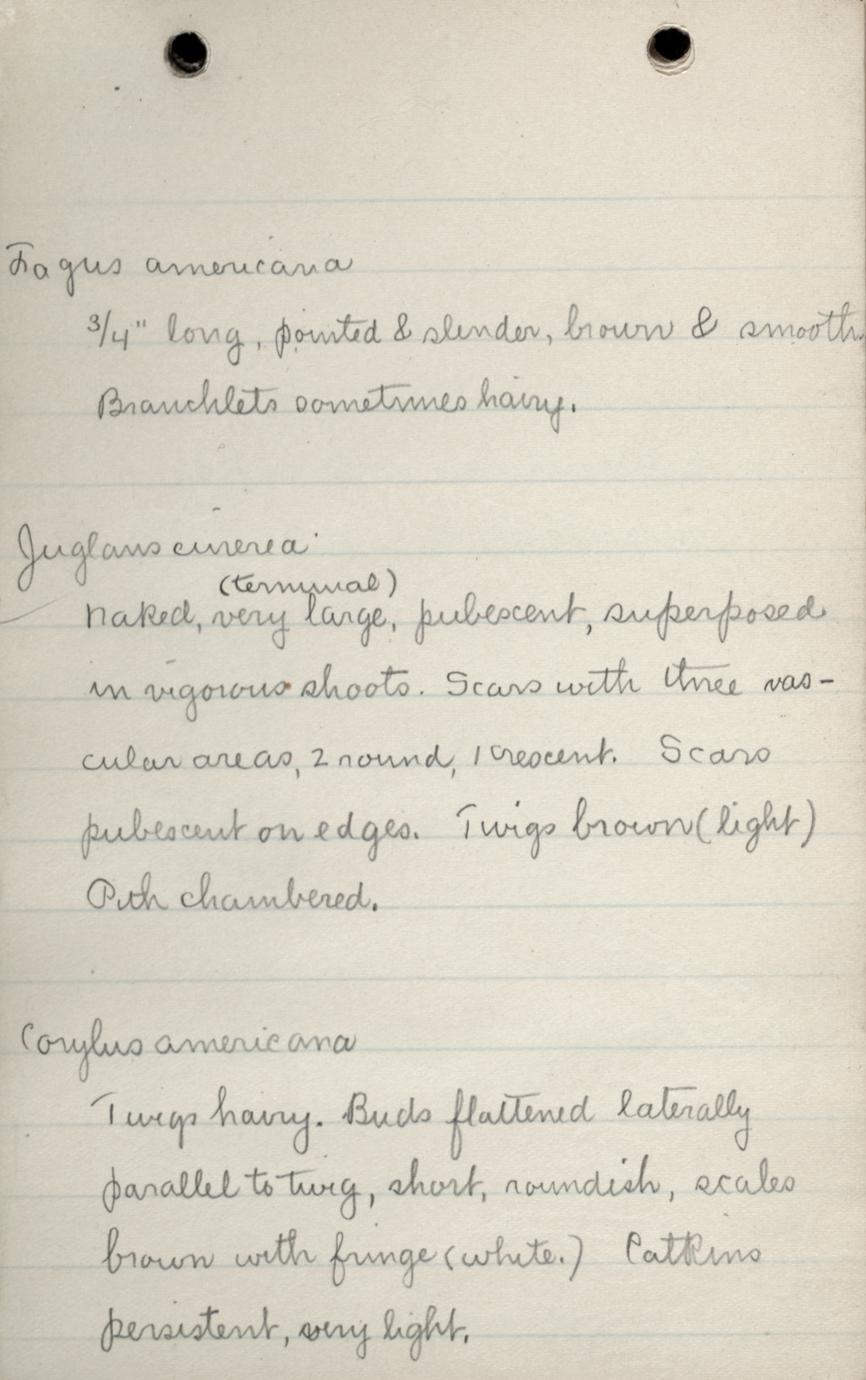 Fagus americana
3/4" long, pointed & slender, brown & smooth.
Branchlets sometimes hairy.
Juglans cinerea
(terminal)
Naked, very large, pubescent, superposed
in vigorous shoots. Scars with three vas-
cular areas, 2 round, 1 crescent. Scars
pubescent on edges. Twigs brown (light)
Pith chambered.
Corylus americana
Twigs hairy. Buds flattened laterally
parallel to twig, short, roundish, scales
brown with fringe (white.) Catkins
persistent, very light.